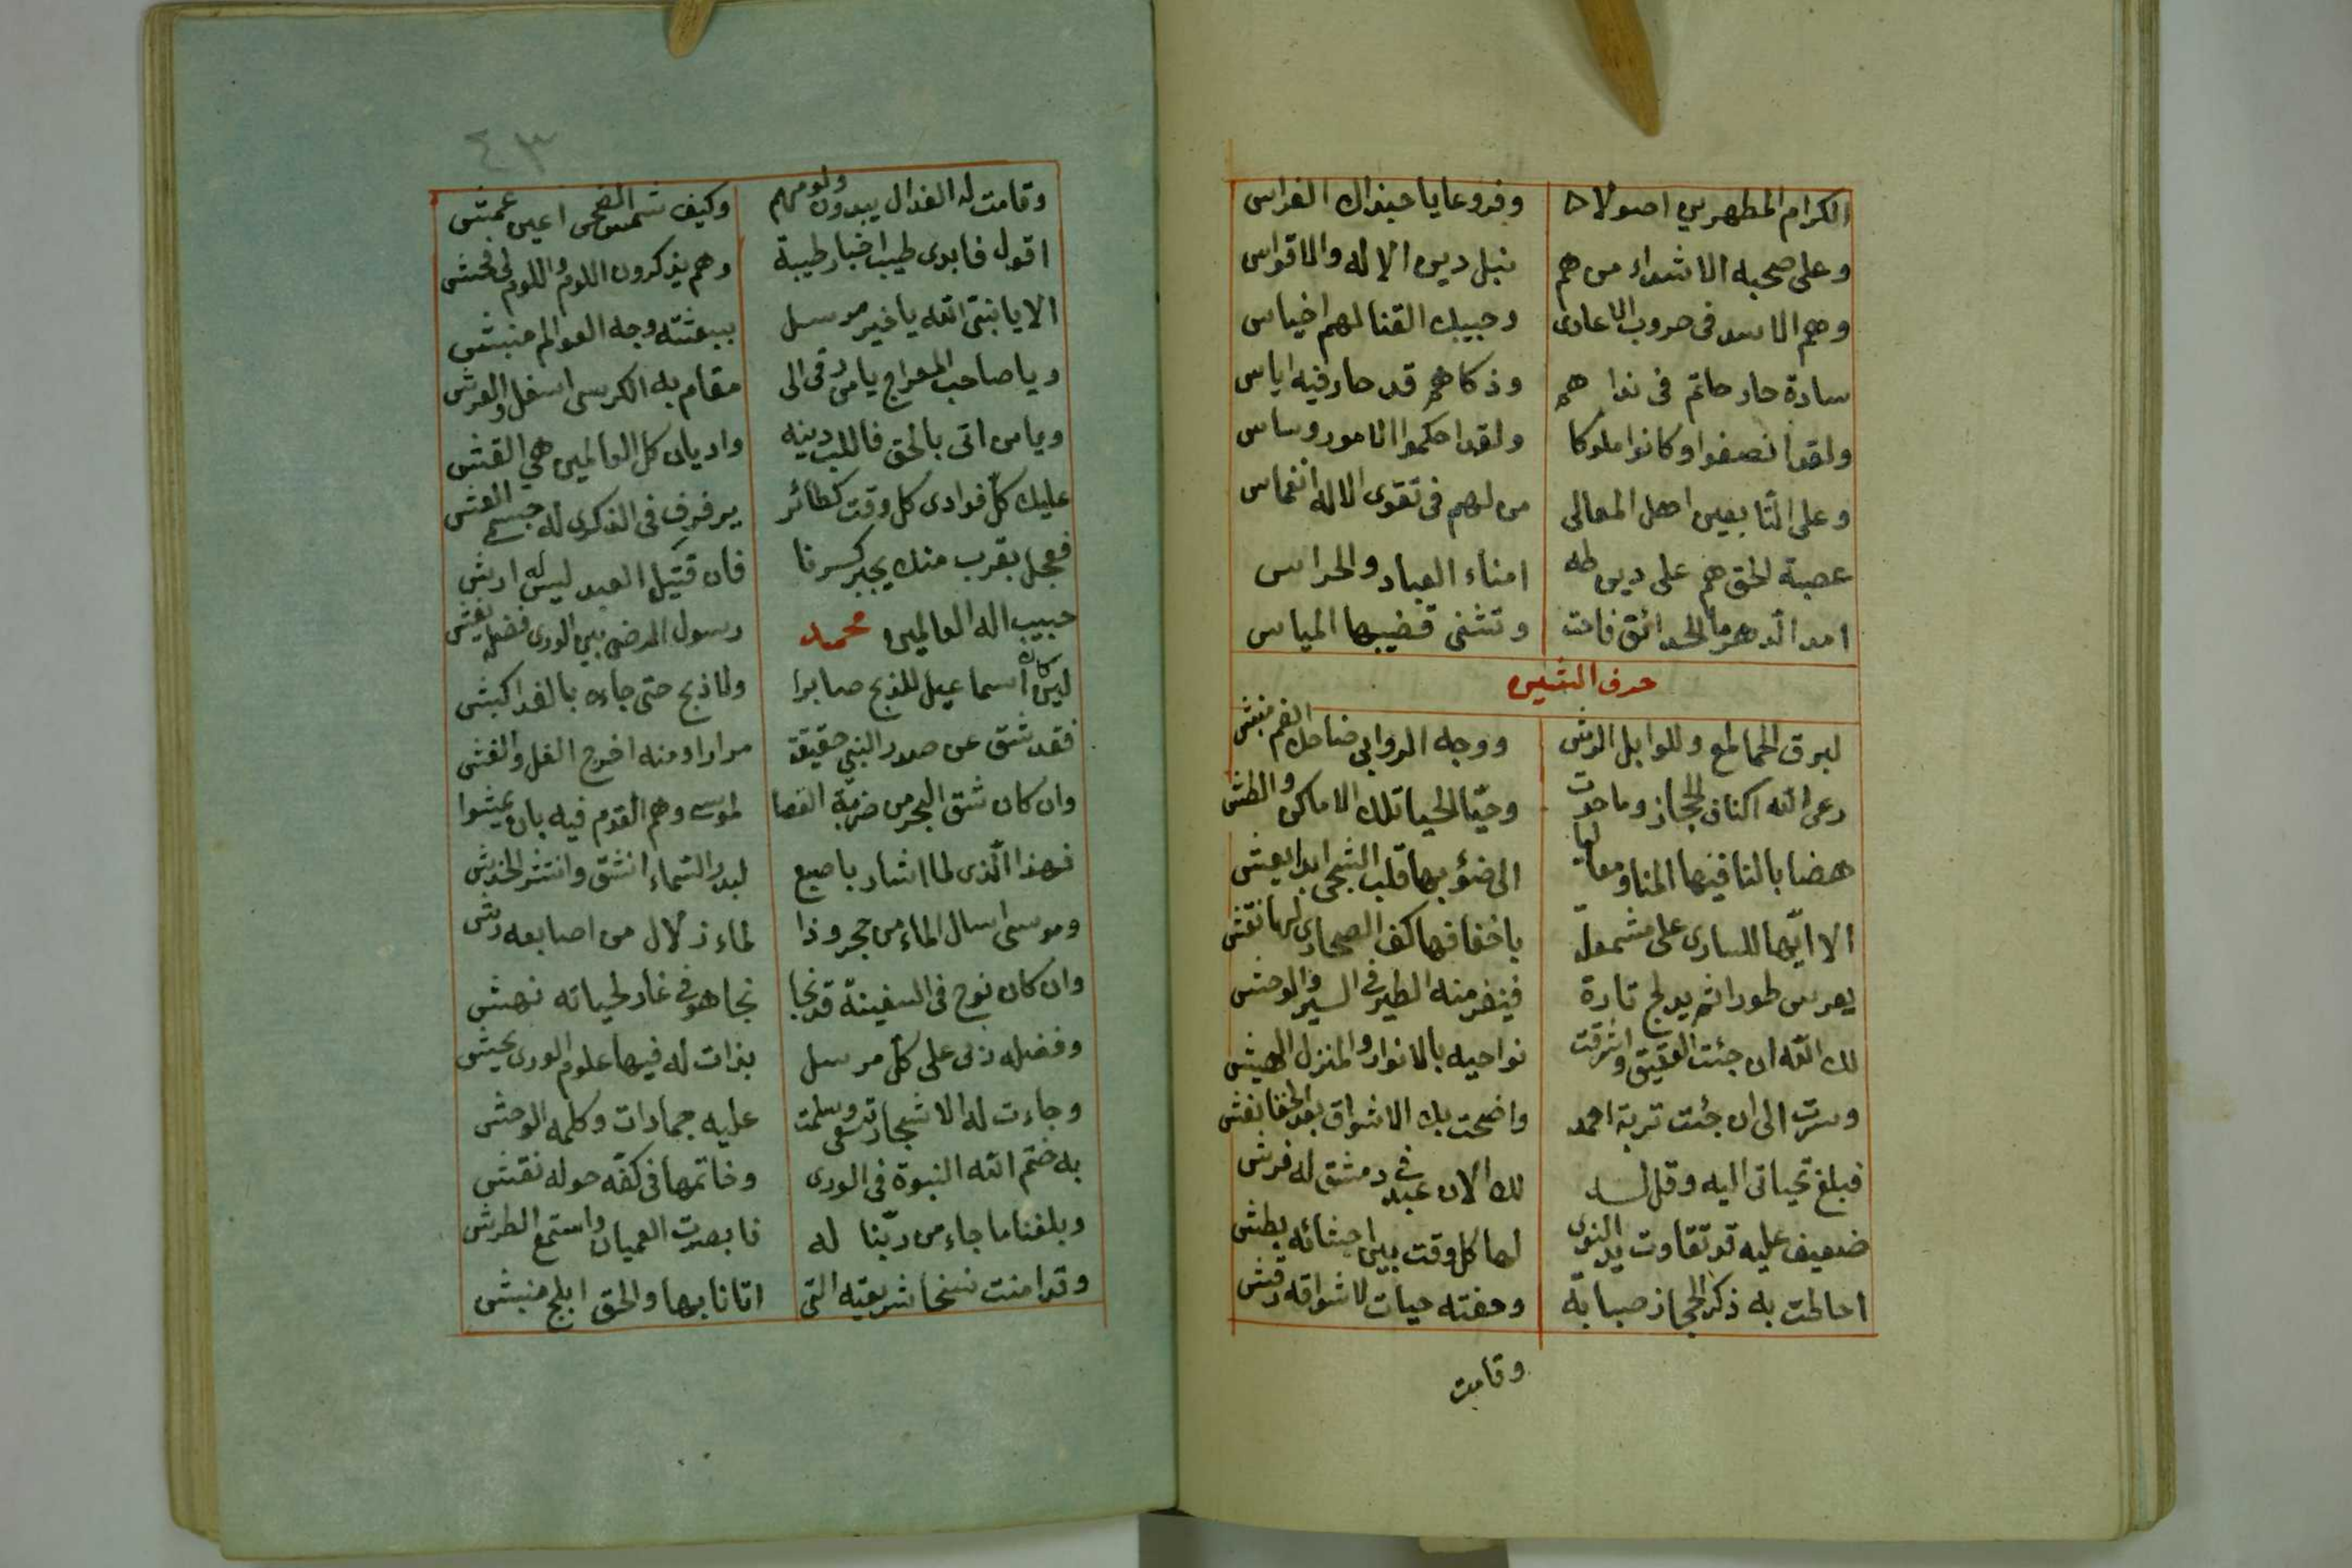 الكرام المطهرين اصولا وفروعا يا حبذاك الغراس
وعلى صحبه الاشداء من هم بنبل دين الاله والاقواس
وهم الاسد فى حروب الاعادى القنا لهم اخياس
سادة حار حاتم فى نداهم وذكاهم قد حار فيه اياس
ولقد انصفوا وكانوا ملوكا ولقد احكموا الامور وساس
وعلى التابعين اهل المعالى من لهم فى تقوى الاله انغماس
عصبة الحق هم على دين طه امناء العباد والحراس
امد الدهر ما الحدائق فاحت وتثنى قضيبها المياس
حرف الشين
لبرق الحما لمع وللوابل الرش ووجه الروابى ضاحك الفم منبش
رعى الله اكناف الحجاز وما حوت وحيّا الحيا تلك الاماكن والطش
هضابا لنا فيها المنا ومعالما الى ضوئها قلب الشجى ابدا يعشو
الا ايّها السارى على مشمعلّة باخفافها كف الصحارى لها نقش
يعرس طورا ثم يدلج تارة فينفر منه الطير فى السير والوحش
لك الله ان جئت العقيق واشرقت نواحيه بالانوار والمنزل الهش
وسرت الى ان جئت تربة احمد واضحت بك الاشواق بعد الخفا تفشو
فبلغ تحياتى اليه وقل له لك الان عبد فى دمشق له فرش
ضعيف عليه قد تقاوت يد النوى لها كل وقت بين احشائه بطش
احاطت به ذكر الحجاز صبابة وحفته حيات لاشواقه رقش
وقامت
٤٣
وقامت له العذال يبدون لومهم وكيف شمس الضحى اعين عمش
اقول فابدى طيب اخبار طيبة وهم يذكرون اللوم واللوم لى فحش
الا يا نبى الله يا خير مرسل ببعثته وجه العوالم منبش
ويا صاحب المعراج يا من رقى الى مقام به الكرسى اسفل والعرش
ويا من اتى بالحق فاللب دينه واديان كل العالمين هى القش
عليك كلّ فوادى كل وقت كطائر يرفرف فى الذكرى له جسمى العش
فعجل بقرب منك يجبر كسرنا فان قتيل العبد ليس له ارش
حبيب اله العالمين محمد رسول الرضى بين الورى فضله يفشو
لئن كان اسماعيل للذبح صابرا ولا ذبح حتى جاءه بالفدا كبش
فقد شق عن صدر النبى حقيقة مرارا ومنه اخرج الغل والغش
وان كان شق البحر من ضربة العصا لموسى وهم القوم فيه بان يمشوا
فهذا الّذى لما اشار باصبع لبدر السماء انشق وانتشر الخدش
وموسى اسال الماء من حجر وذا لماء زلال من اصابعه رش
وان كان نوح فى السفينة قد نجا نجا هو فى غار لحياته نهش
وفضله ربى على كل مرسل بذات له فيها علوم الورى
وجاءت له الاشجار تسعى وسلمت عليه جمادات وكلمه الوحش
به ختم الله النبوة فى الورى وخاتمها فى كتفه حوله نقش
وبلغنا ما جاء من ربّنا له فابصرت العميان واستمع الطرش
وقد امنت نسخا شريعته التى اتانا بها والحق ابلج منبش